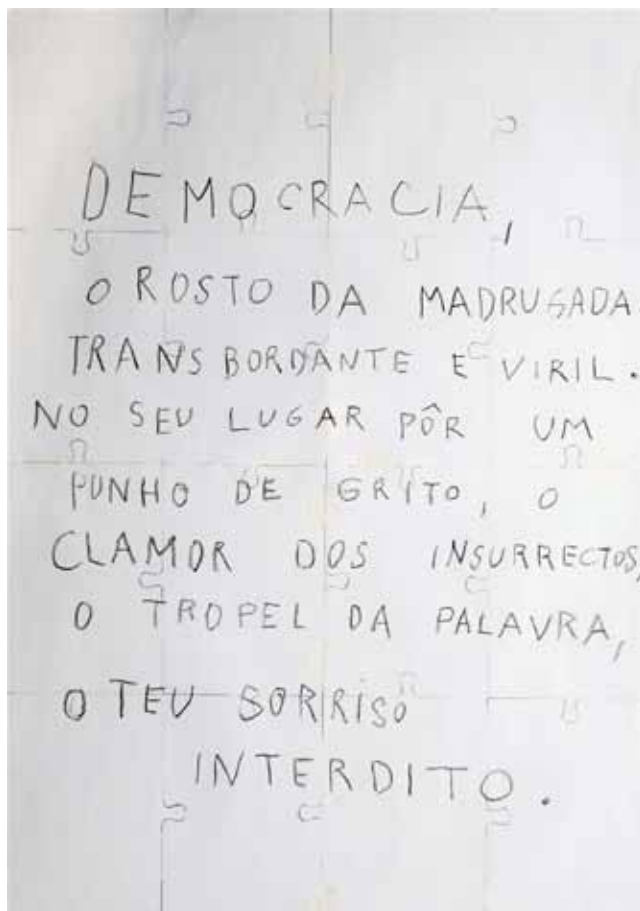 DEMOCRACIA,
O ROSTO DA MADRUGADA
TRANSBORDANTE E VIRIL.
NO SEU LUGAR PÔR UM
PUNHO DE GRITO, O
CLAMOR DOS INSURRECTOS,
O TROPEL DA PALAVRA,
O TEU SORRISO
INTERDITO.